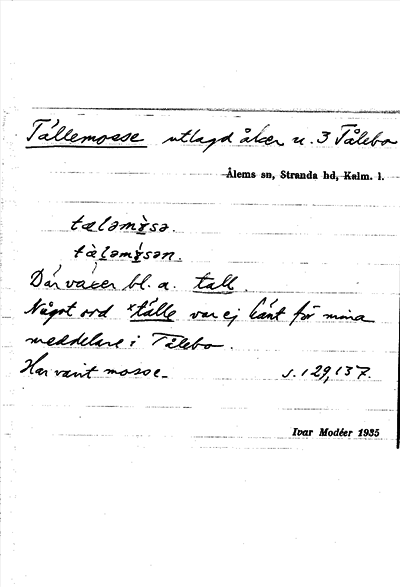 Tållemosse utlagd åker u. 3 Tålebo
Ålems sn, Stranda hd, Kalm. l.
Där växer bl. a. tall.
Något ord *tålle var ej känt för mina
meddelare i Tålebo.
Har varit mosse. s. 129, 137.
Ivar Modéer 1935